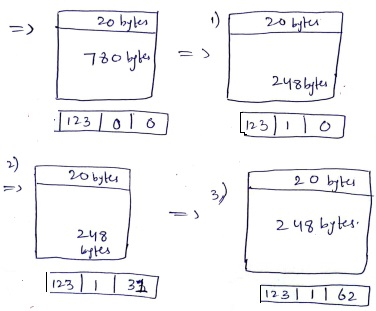 => 20 bytes
780 bytes
123 | 0 | 0
=> 1) 20 bytes
248 bytes
123 | 1 | 0
2)
=> 20 bytes
248
bytes
123 | 1 | 31
=> 3) 20 bytes
248 bytes.
123 | 1 | 62